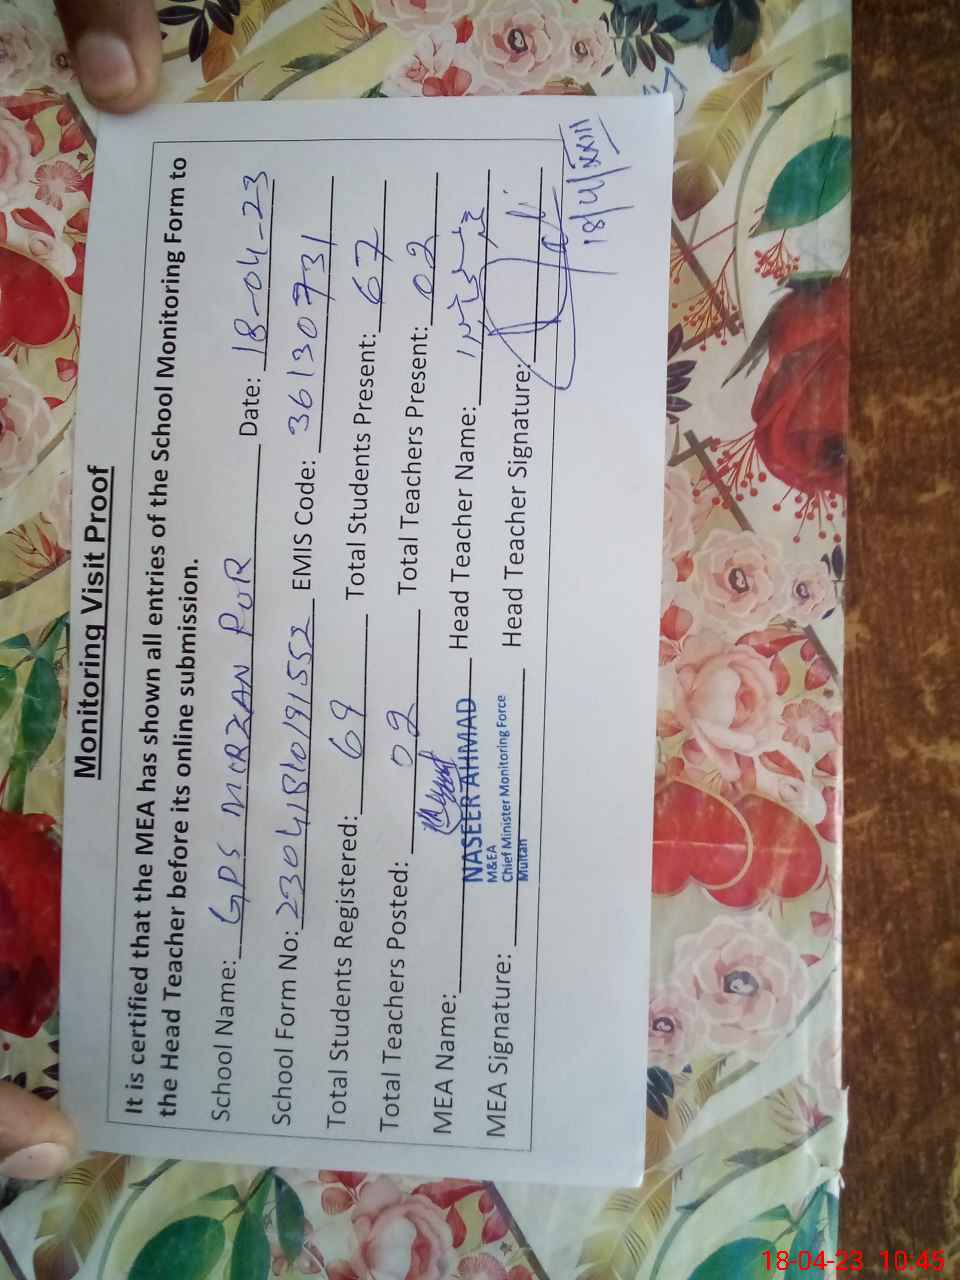 Monitoring Visit Proof
It is certified that the MEA has shown all entries of the School Monitoring Form to
the Head Teacher before its online submission.
School Name: GPS PUR Date: 18-04-23
School Form No: EMIS Code: 36130731
Total Students Registered: 69 Total Students Present: 67
Total Teachers Posted: 02 Total Teachers Present: 02
MEA Name: NASEER AHMAD Head Teacher Name:
M&EA
Chief Minister Monitoring Force
Multan
MEA Signature: Head Teacher Signature:
18-04-23 10:45